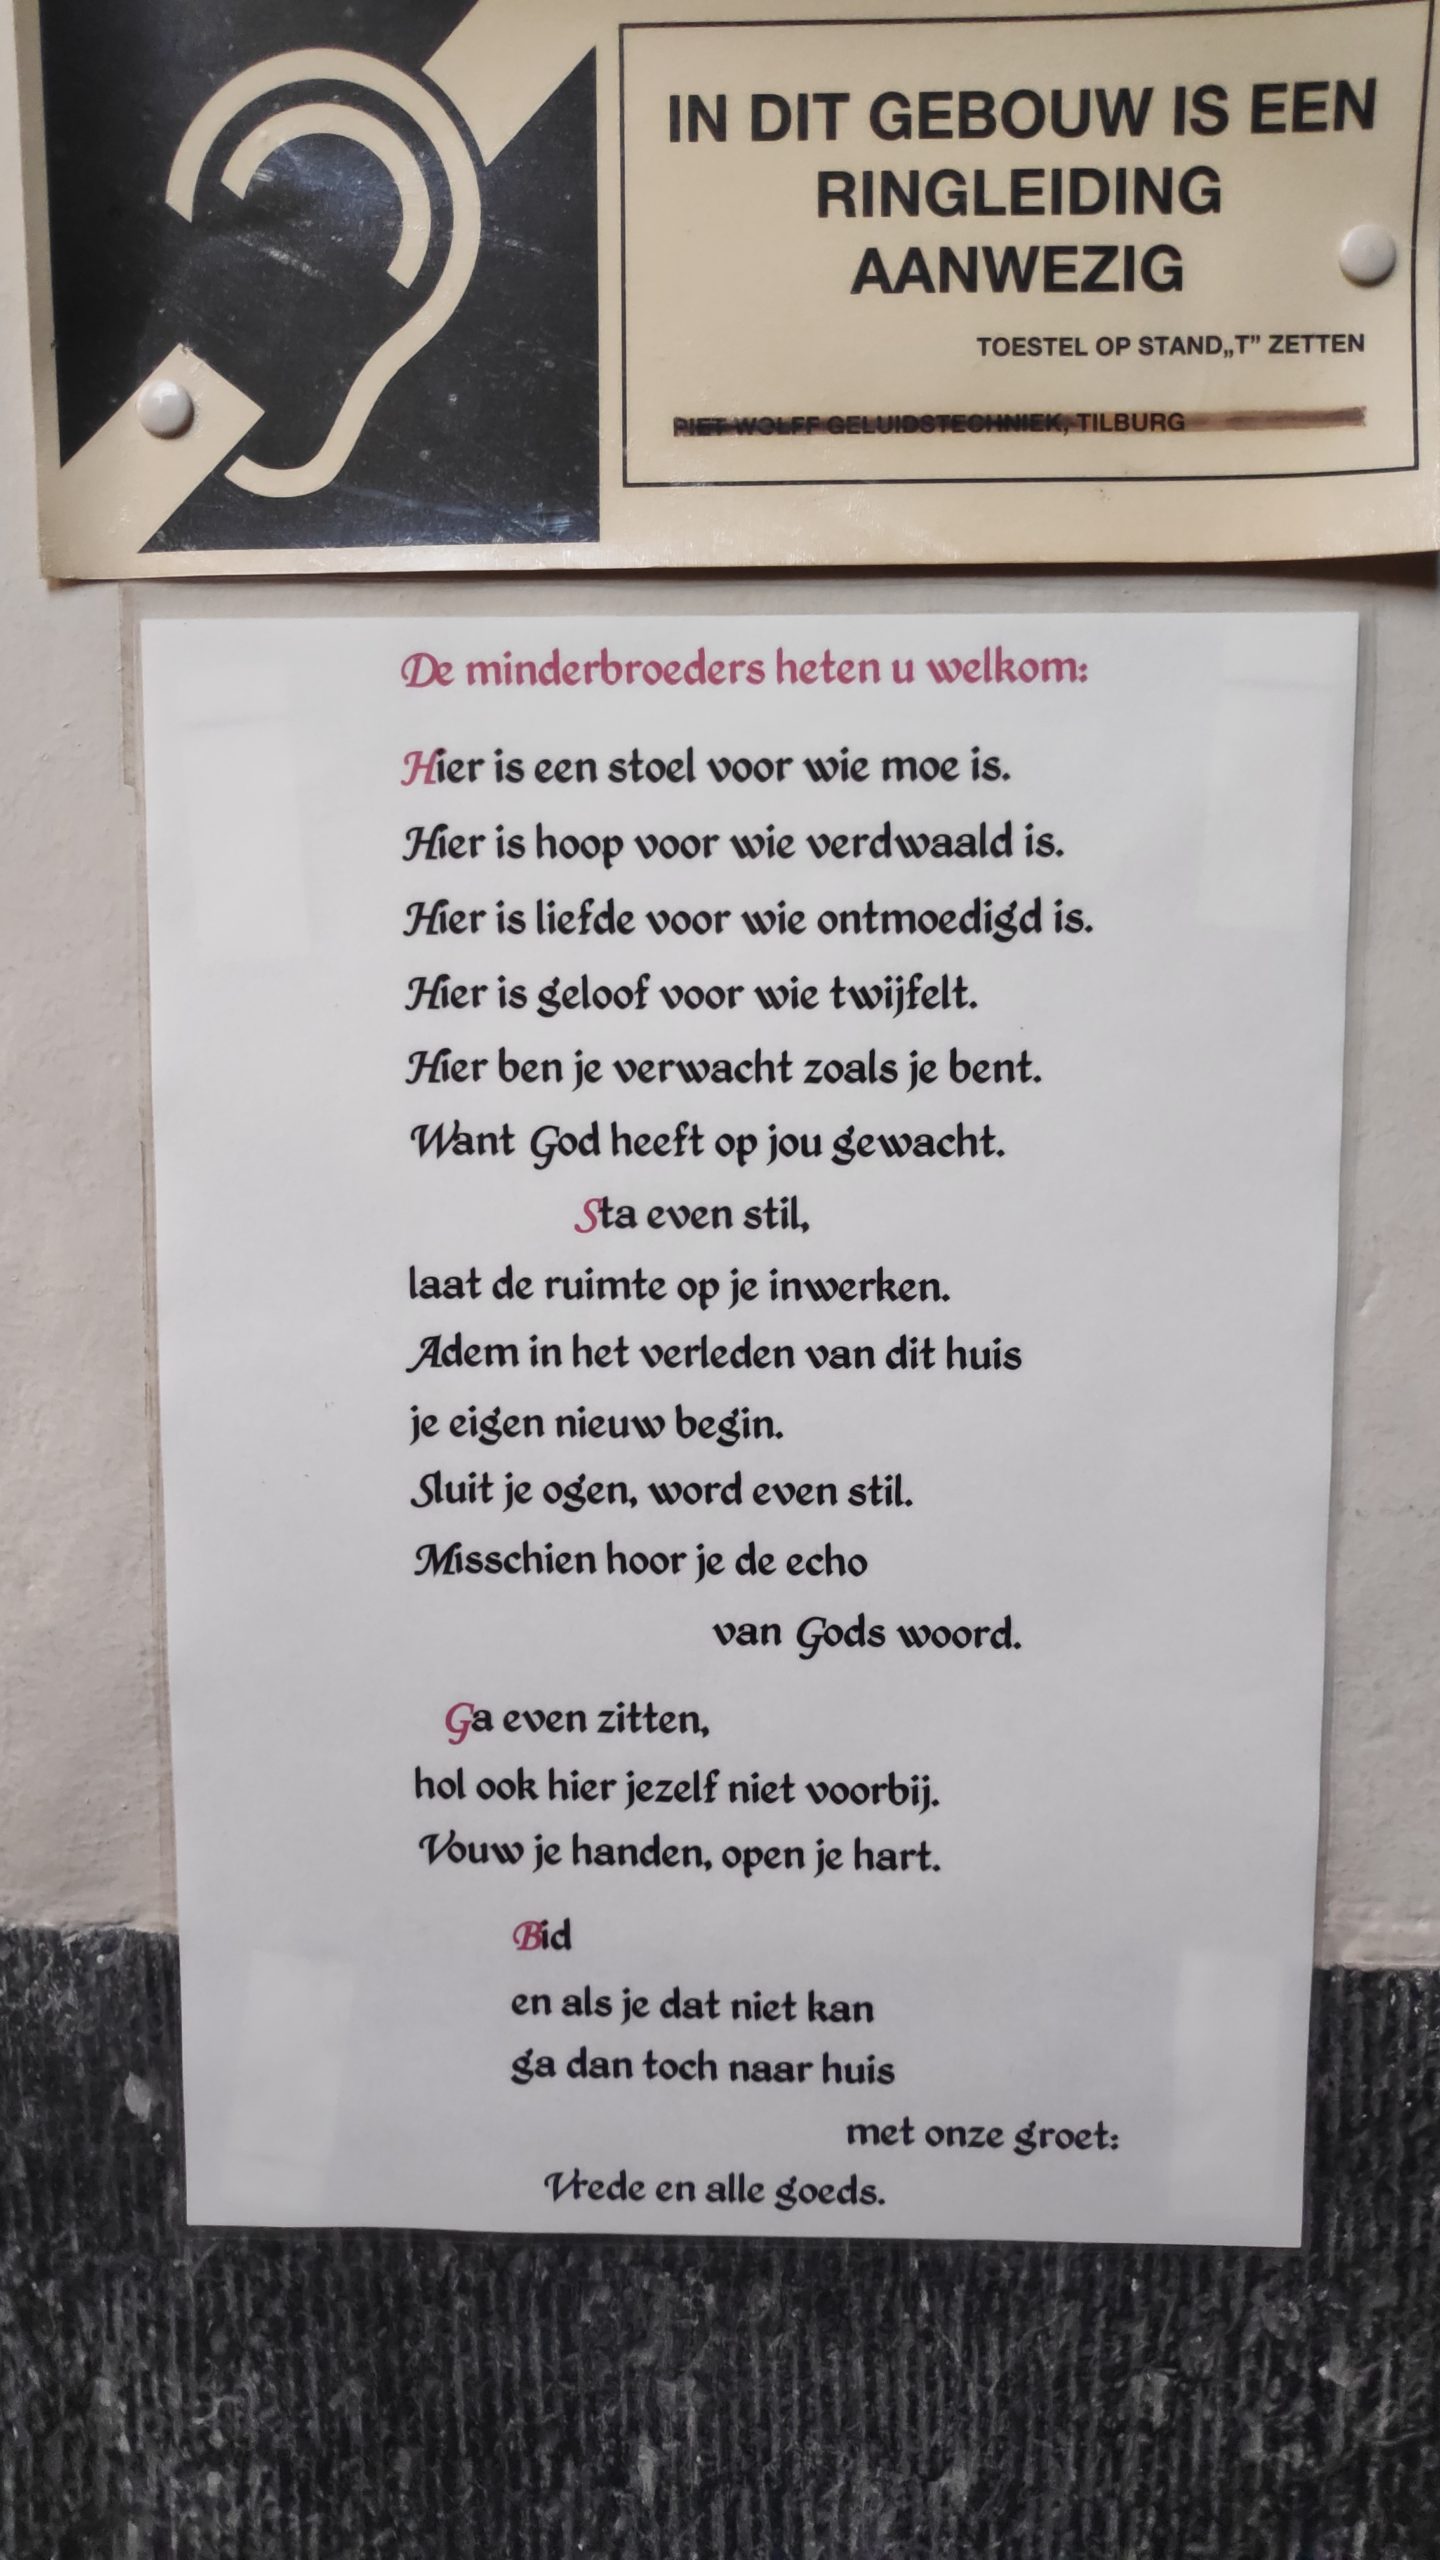 IN DIT GEBOUW IS EEN
RINGLEIDING
AANWEZIG
TOESTEL OP STAND„T” ZETTEN
PIET WOLFF GELUIDSTECHNIEK, TILBURG
De minderbroeders heten u welkom:
Hier is een stoel voor wie moe is.
Hier is hoop voor wie verdwaald is.
Hier is liefde voor wie ontmoedigd is.
Hier is geloof voor wie twijfelt.
Hier ben je verwacht zoals je bent.
Want God heeft op jou gewacht.
Sta even stil,
laat de ruimte op je inwerken.
Adem in het verleden van dit huis
je eigen nieuw begin.
Sluit je ogen, word even stil.
Misschien hoor je de echo
van Gods woord.
Ga even zitten,
hol ook hier jezelf niet voorbij.
Vouw je handen, open je hart.
Bid
en als je dat niet kan
ga dan toch naar huis
met onze groet:
Vrede en alle goeds.